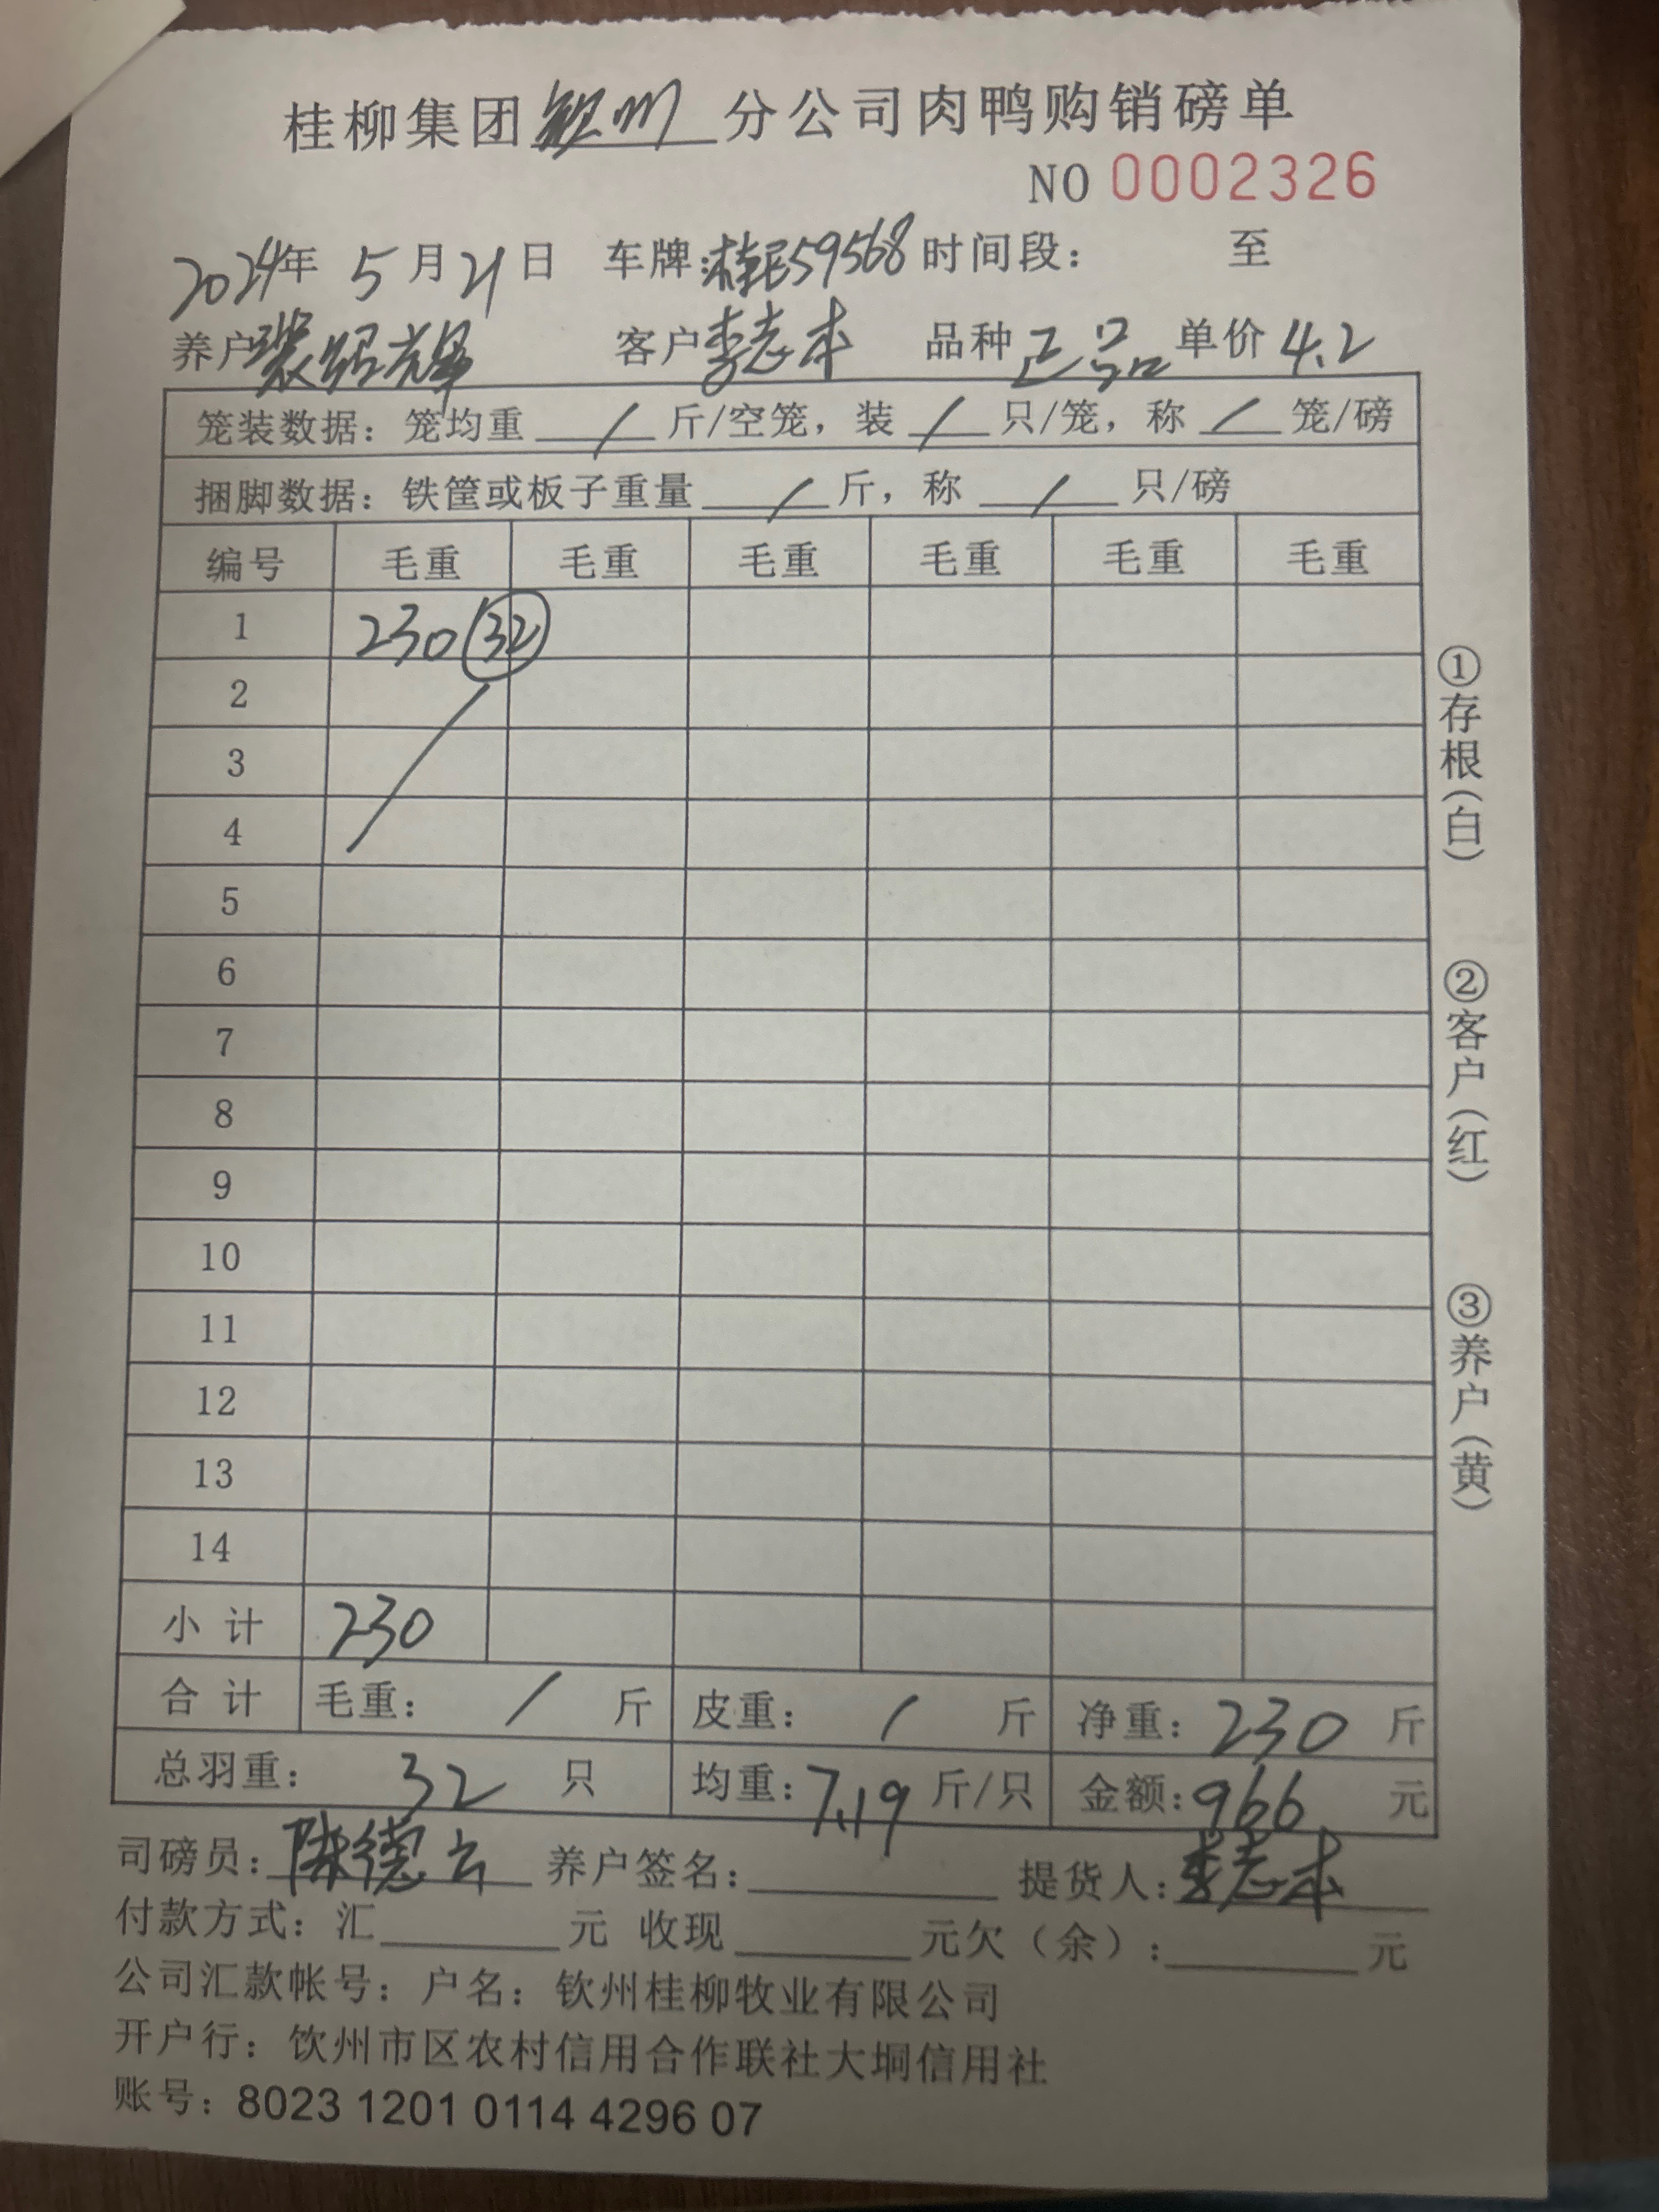 桂柳集团钦州分公司肉鸭购销磅单
NO 0002326
2024年 5月21日 车牌:桂E59568 时间段: 至
养户裴绍辉 客户李志本 品种正品 单价4.2
笼装数据:笼均重 / 斤/空笼,装 / 只/笼,称 / 笼/磅
捆脚数据:铁筐或板子重量 / 斤,称 / 只/磅
编号 毛重 毛重 毛重 毛重 毛重 毛重
1 230 (32)
2
3
4
5
6
7
8
9
10
11
12
13
14
小计 230
合计 毛重: / 斤 皮重: / 斤 净重:230 斤
总羽重: 32 只 均重:7.19 斤/只 金额:966 元
司磅员:陈德云 养户签名: 提货人:李志本
付款方式:汇 元 收现 元欠(余): 元
公司汇款帐号:户名:钦州桂柳牧业有限公司
开户行:钦州市区农村信用合作联社大垌信用社
账号:8023 1201 0114 4296 07
①存根(白)
②客户(红)
③养户(黄)